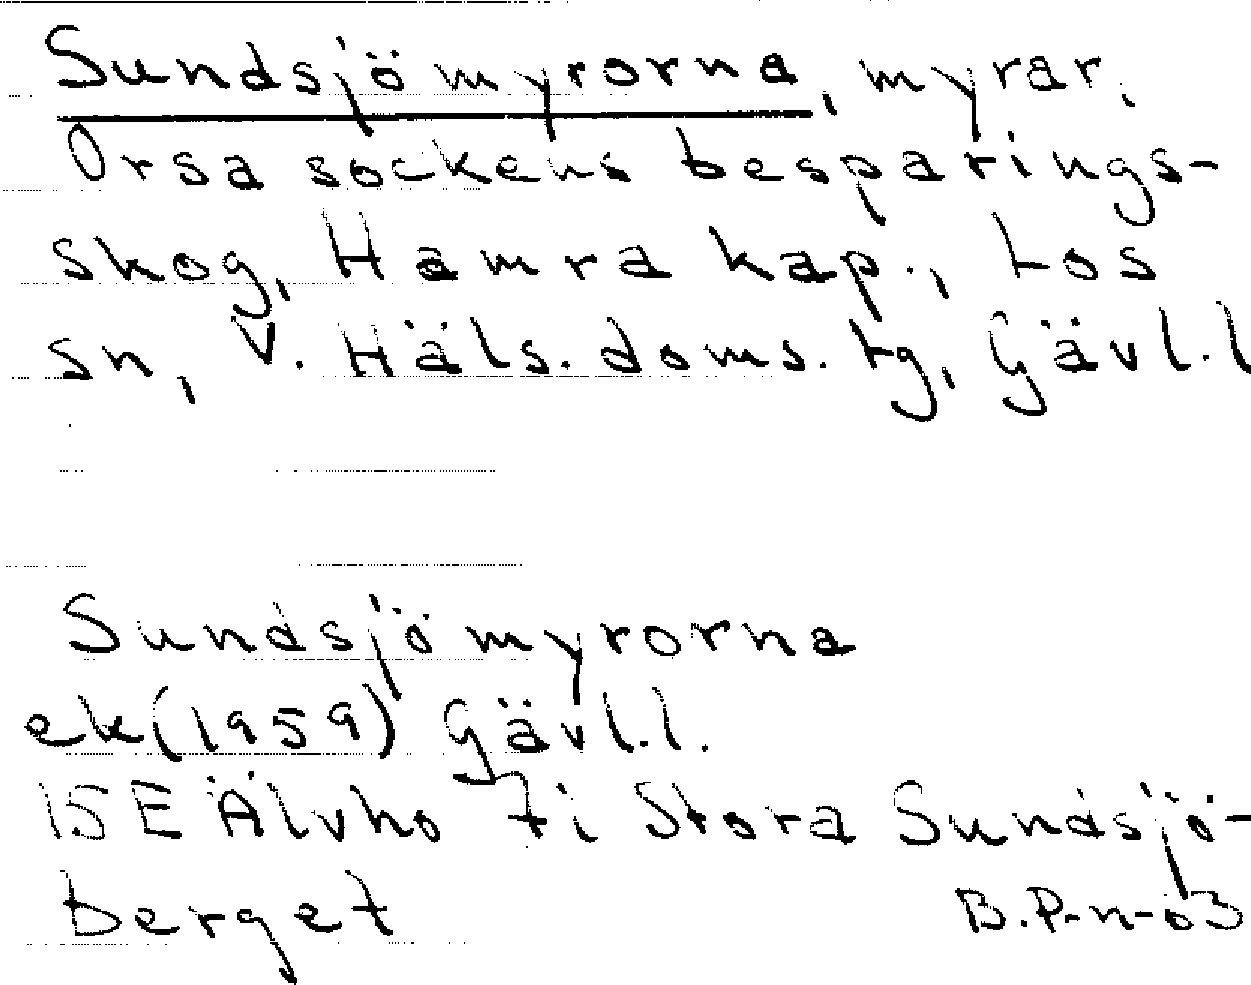 Sundsjömyrorna, myrar,
Orsa sockens besparings-
skog, Hamra kap., Los
sn, V. Häls. doms. tg, Gävl.l
Sundsjömyrorna
ek(1959) Gävl.l.
15E Älvho 7i Stora Sundsjö-
berget B.P-n-63